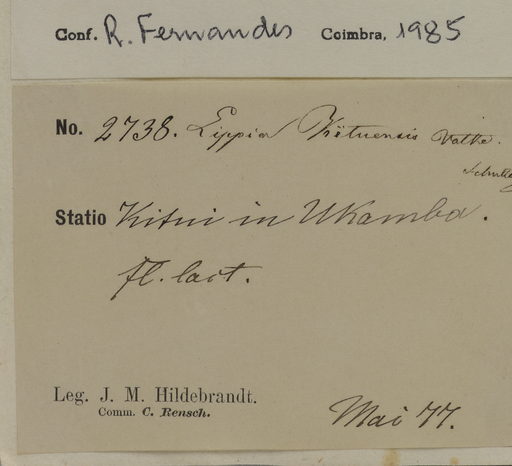 Conf. R. Fernandes Coimbra, 1985
No. 2738. Lippia Kituensis Vatke.
Statio Kitui in Ukamba.
fl. lact.
Leg. J. M. Hildebrandt.
Comm. C. Rensch.
Mai 77.